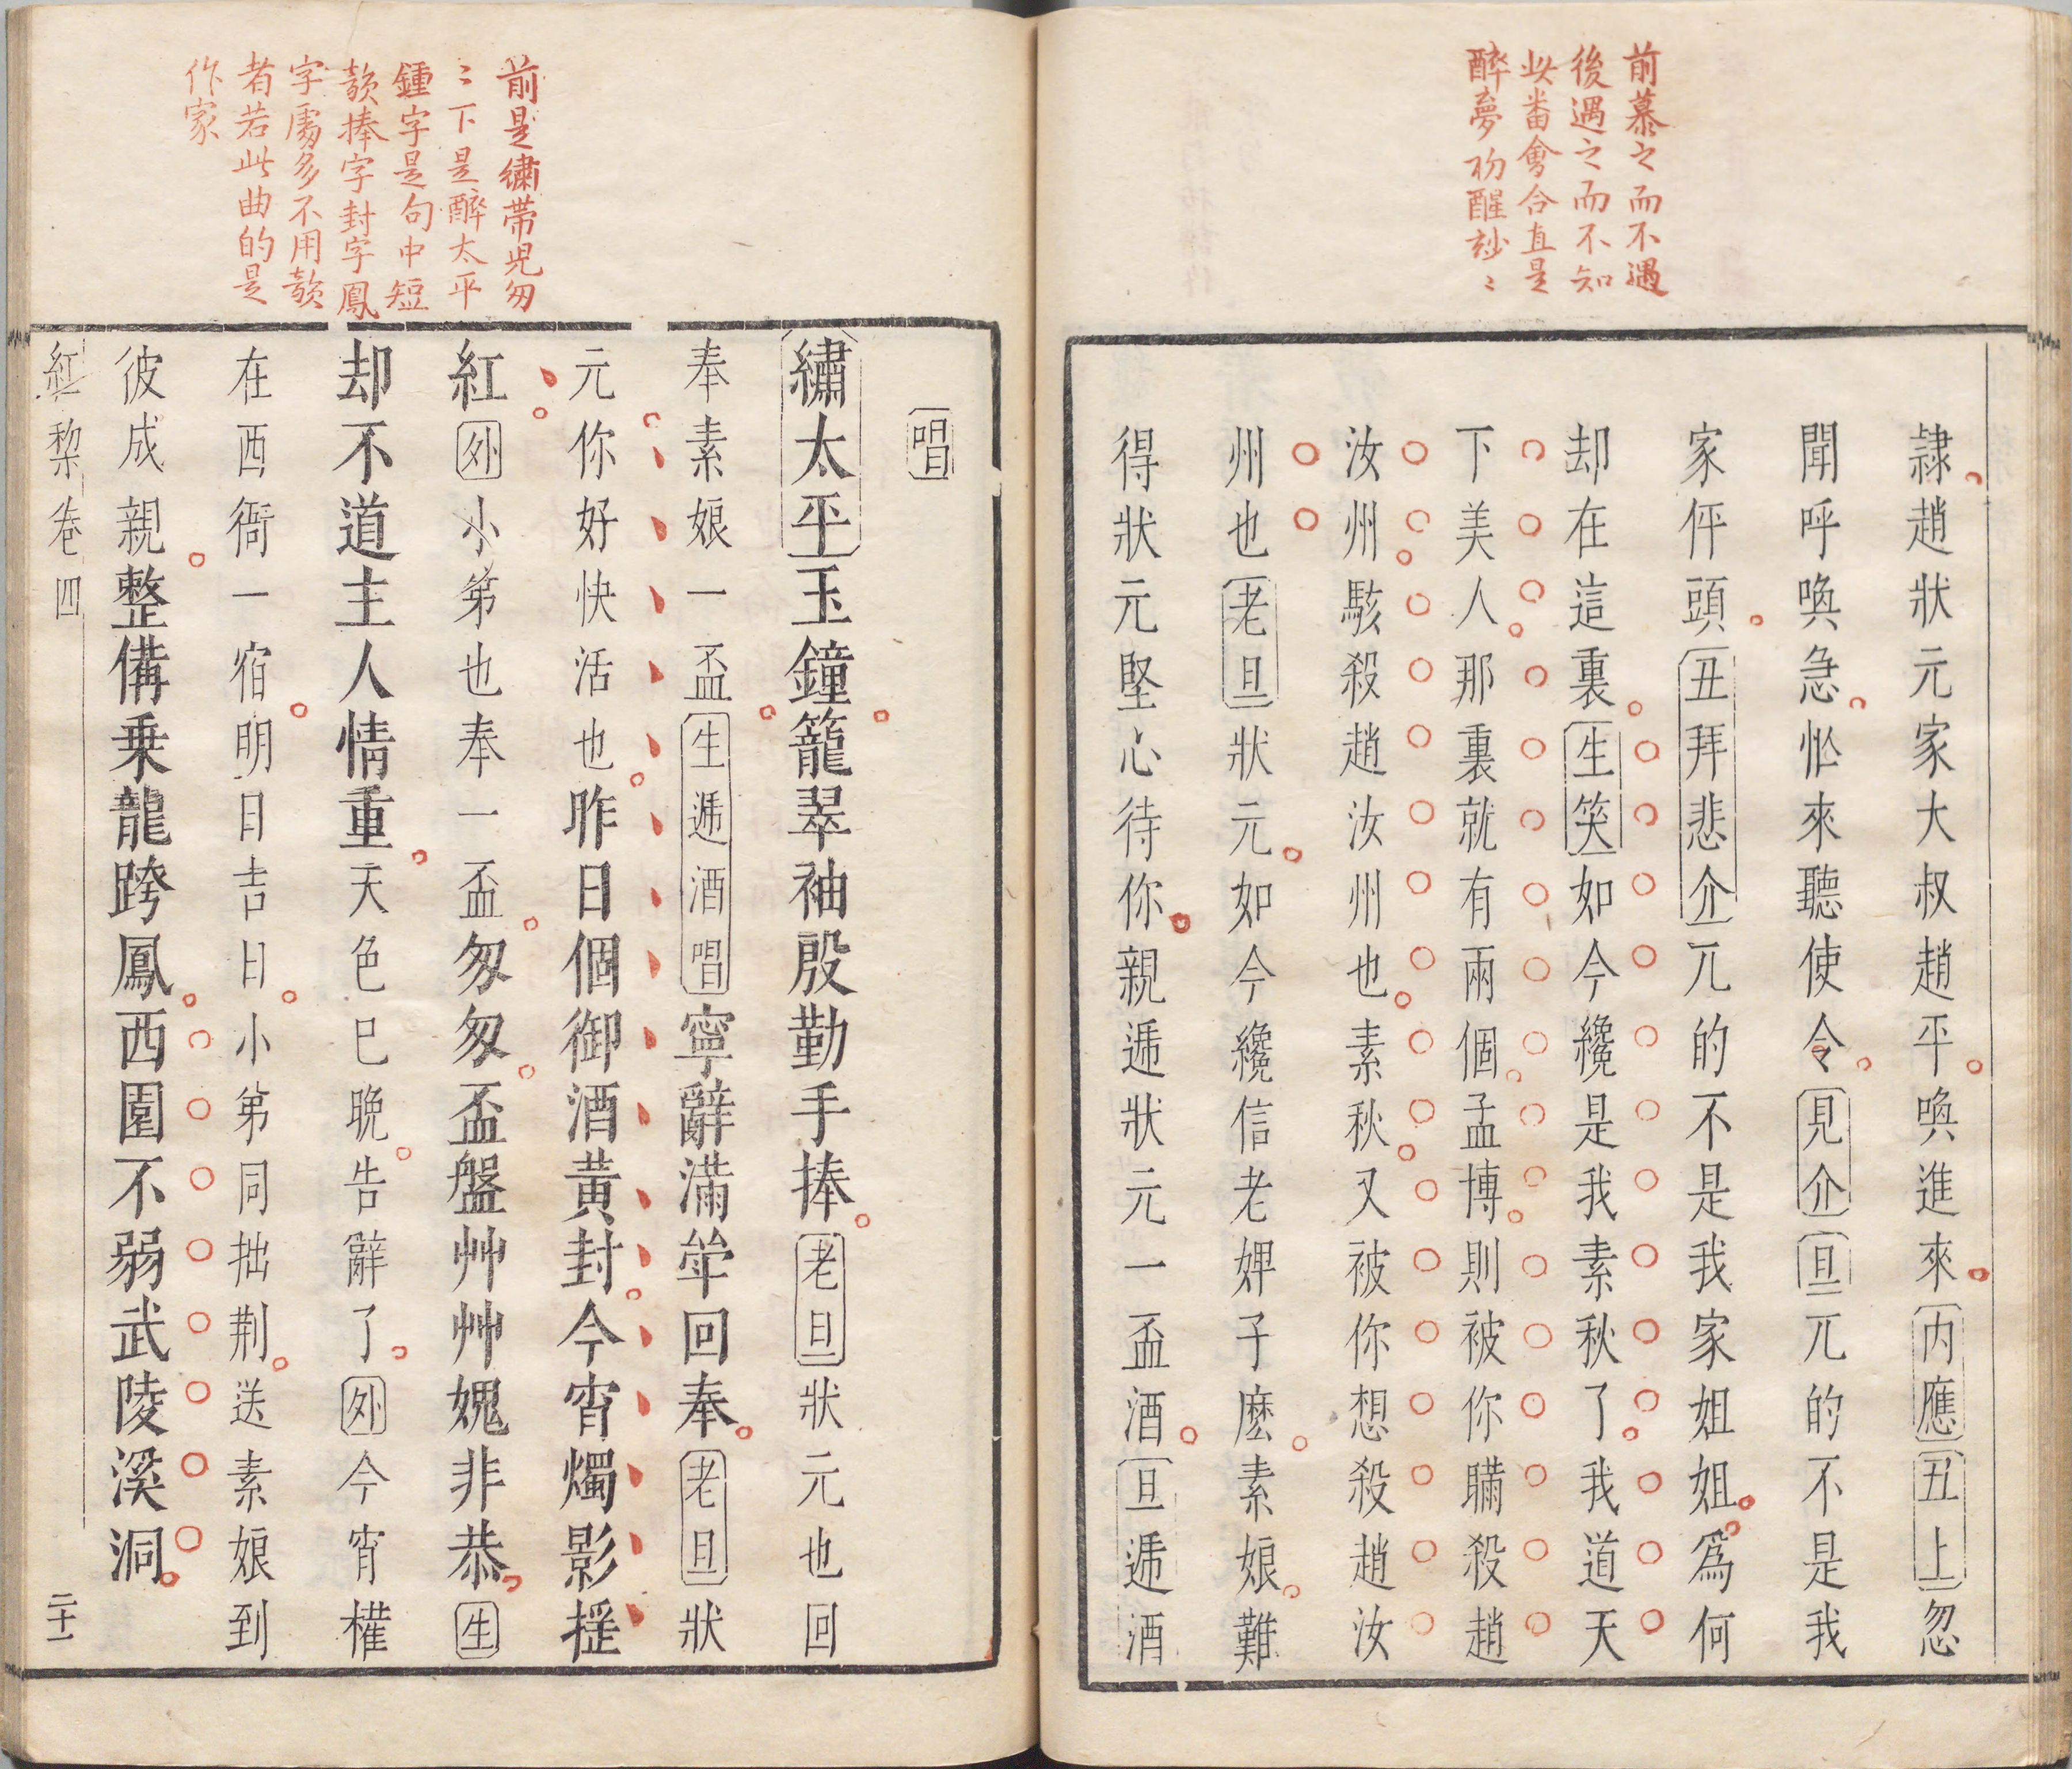 前慕之而不遇
後遇之而不知
此番會合直是
醉夢初醒妙〻
隷趙狀元家大叔趙平喚進來內應丑上忽
聞呼喚急忙來聽使令見介旦兀的不是我
家伻頭丑拜悲介兀的不是我家姐姐爲何
却在這裏生笑如今纔是我素秋了我道天
下美人那裏就有兩個孟博則被你瞞殺趙
汝州駭殺趙汝州也素秋又被你想殺趙汝
州也老旦狀元如今纔信老婢子麽素娘難
得狀元堅心待你親遞狀元一盃酒旦遞酒
前是繡帶兒匆
〻下是醉太平
鍾字是句中短
韻捧字封字鳳
字處多不用韻
者若此曲的是
作家
唱
繡太平玉鐘籠翠袖殷勤手捧老旦狀元也回
奉素娘一盃生遞酒唱寧辭滿斚回奉老旦狀
元你好快活也昨日個御酒黃封今宵燭影搖
紅外小弟也奉一盃匆匆盃盤艸艸媿非恭生
却不道主人情重天色已晚告辭了外今宵權
在西衙一宿明日吉日小弟同拙荆送素娘到
彼成親整備乘龍跨鳳西園不弱武陵溪洞
紅梨卷四
二十一